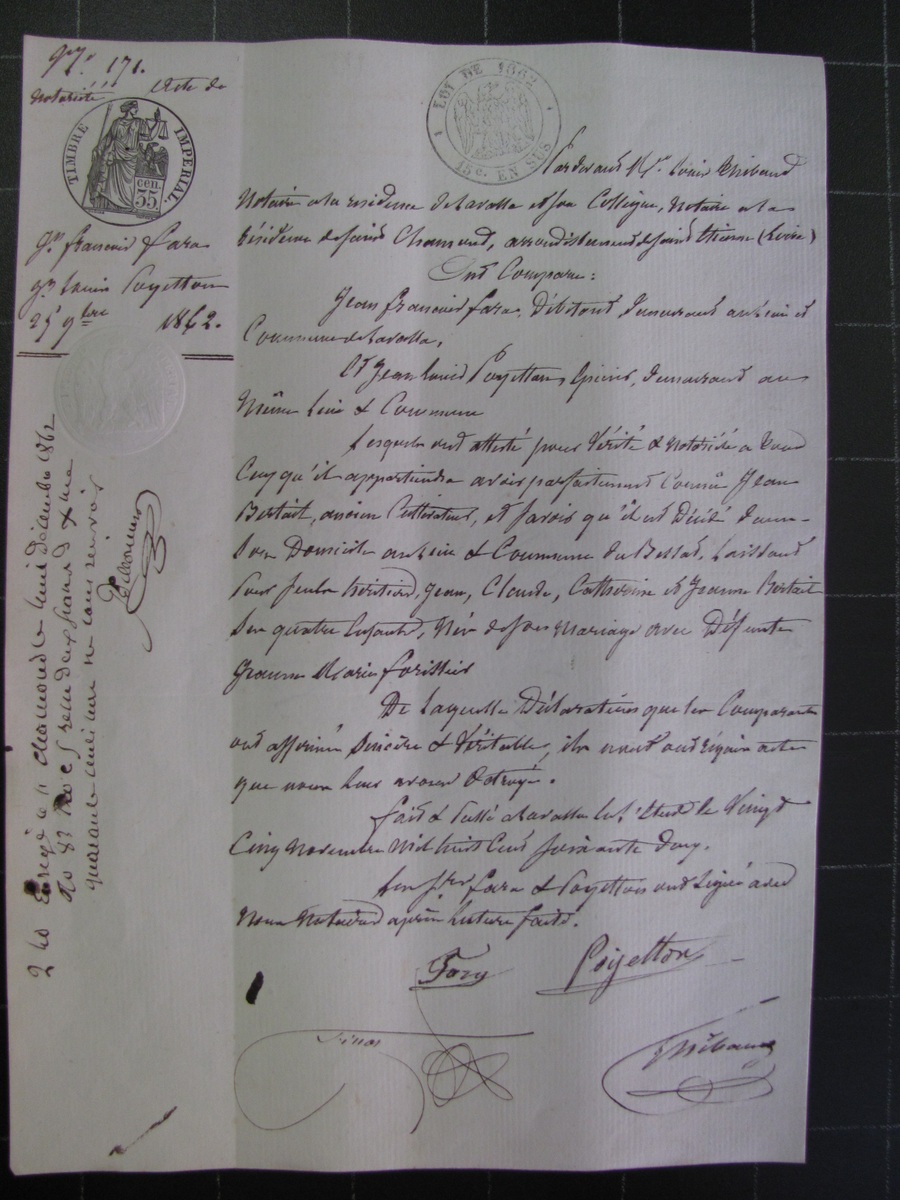 N° 171.
Acte de
Notoriété
TIMBRE IMPERIAL
55 cen.
Jn François Fara
Jn Louis Poyetton
25 9bre 1862.
LOI DE 1862
15 c. EN SUS
Pardevant Me Louis Thibaud
Notaire à la résidence de Lavalla et son Collègue, Notaire à la
Résidence de Saint Chamond, arrondissement de Saint Etienne (Loire)
Ont Comparu :
Jean François Fara, Débitant, demeurant au Lieu et
Commune de Lavalla,
Et Jean Louis Poyetton, Epicier, demeurant au
Même Lieu & Commune
Lesquels ont attesté pour Vérité & Notoriété à tous
Ceux qu'il appartiendra avoir parfaitement Connu Jean
Bertail, ancien Cultivateur, et savoir qu'il est Décédé dans
Son Domicile au Lieu & Commune du Bessat, Laissant
Pour seuls héritiers, Jean, Claude, Catherine et Jeanne Bertail
Ses quatre Enfants, Nés de son Mariage avec Défunte
Jeanne Marie
De Laquelle Déclaration que les Comparants
ont affirmée Sincère & Véritable, ils nous ont requis acte
que nous leur avons Octroyé.
Fait & Passé à Lavalla En l'Etude le Vingt
Cinq Novembre Mil huit Cent soixante deux.
Les Srs Fara & Poyetton ont signé avec
Nous Notaires après lecture faite.
Fara Poyetton
Finas Thibaud
240 Enregé à St Chamond le huit décembre 1862
fo 83 Ro c 5 reçu deux francs & une
quarante centimes